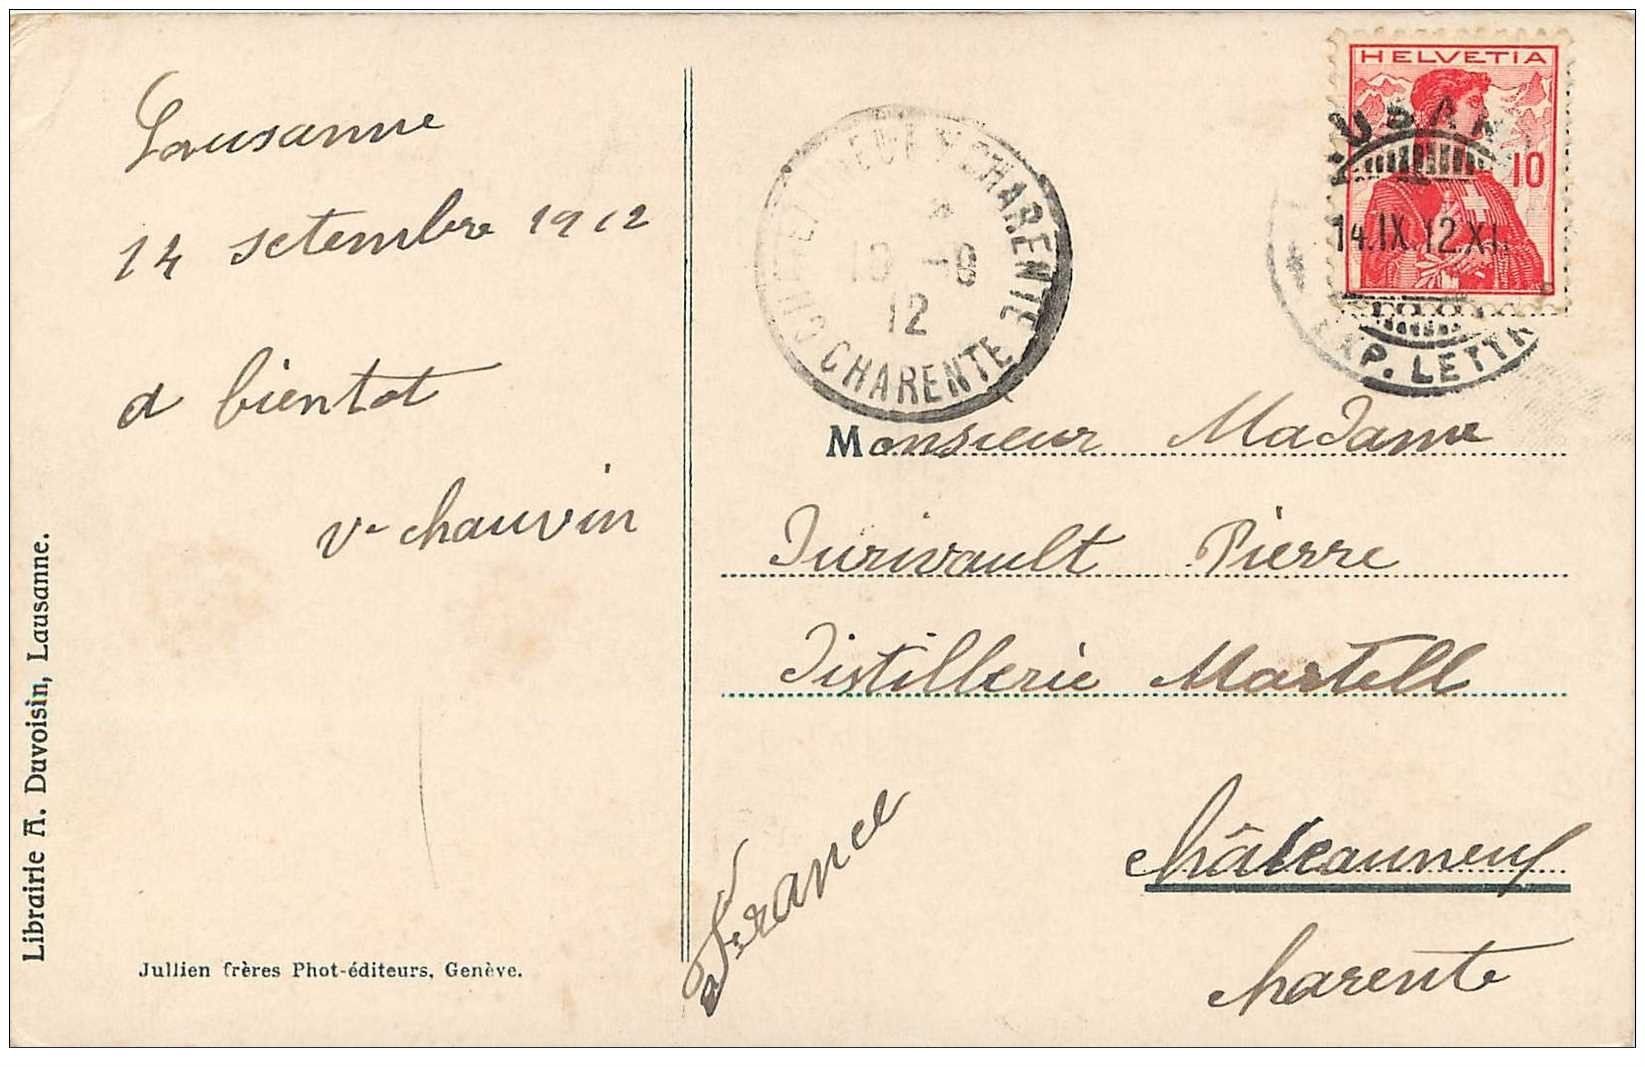 Lausanne
14 setembre 1912
a bientot
Ve chauvin
Librairie A. Duvoisin, Lausanne.
Jullien frères Phot-éditeurs, Genève.
HELVETIA
10
14.IX.12.XI
EXP. LETTR
CHARENTE
12
CHARENTE
Monsieur Madame
Durivault Pierre
Distillerie Martell
Châteauneuf
Charente
France